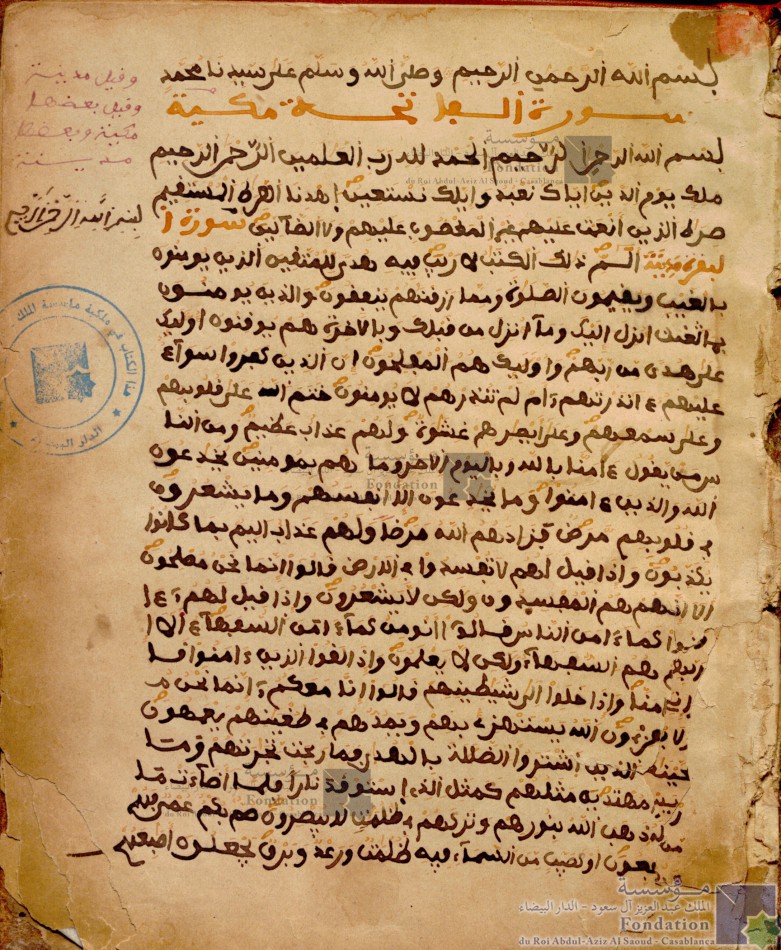 بسم الله الرحمن الرحيم وصلى الله وسلم على سيدنا محمد
سورة الفاتحة مكية
بسم الله الرحمن الرحيم الحمد لله رب العلمين الرحمن الرحيم
ملك يوم الدين اياك نعبد واياك نستعين اهدنا الصرط المستقيم
صرط الذين انعمت عليهم غير المغضوب عليهم ولا الضالين سورة ا
لبقرة مدنية الم ذلك الكتب لا ريب فيه هدى للمتقين الذين يومنون
بالغيب ويقيمون الصلوة ومما رزقنهم ينفقون والذين يومنون
بما انزل اليك وما انزل من قبلك وبالاخرة هم يوقنون اوليك
على هدى من ربهم واوليك هم المفلحون ان الذين كفروا سواء
عليهم ءانذرتهم ام لم تنذرهم لا يومنون ختم الله على قلوبهم
وعلى سمعهم وعلى ابصرهم غشوة ولهم عذاب عظيم ومن النا
س من يقول ءامنا بالله وباليوم الاخر وما هم بمومنين يخدعون
الله والذين ءامنوا وما يخدعون الا انفسهم وما يشعرون
في قلوبهم مرض فزادهم الله مرضا ولهم عذاب اليم بما كانوا
يكذبون واذا قيل لهم لا تفسدوا في الارض قالوا انما نحن مصلحون
الا انهم هم المفسدون ولكن لا يشعرون واذا قيل لهم ءا
منوا كما ءامن الناس قالوا انومن كما ءامن السفهاء الا
انهم هم السفهاء ولكن لا يعلمون واذا لقوا الذين ءامنوا قا
لوا ءامنا واذا خلوا الى شيطينهم قالوا انا معكم انما نحن م
ستهزءون الله يستهزء بهم ويمدهم في طغينهم يعمهون
اوليك الذين اشتروا الضللة بالهدى فما ربحت تجرتهم وما
كانوا مهتدين مثلهم كمثل الذي استوقد نارا فلما اضاءت ما
حوله ذهب الله بنورهم وتركهم في ظلمت لا يبصرون صم بكم عمي فهم
لا يرجعون او كصيب من السماء فيه ظلمت ورعد وبرق يجعلون اصبعهم
وقيل مدينة
وقيل بعضها
مكية وبعضها
مدينة
بسم الله الرحمن الرحيم
مؤسسة
الملك عبد العزيز آل سعود - الدار البيضاء
Fondation
du Roi Abdul-Aziz Al Saoud - Casablanca